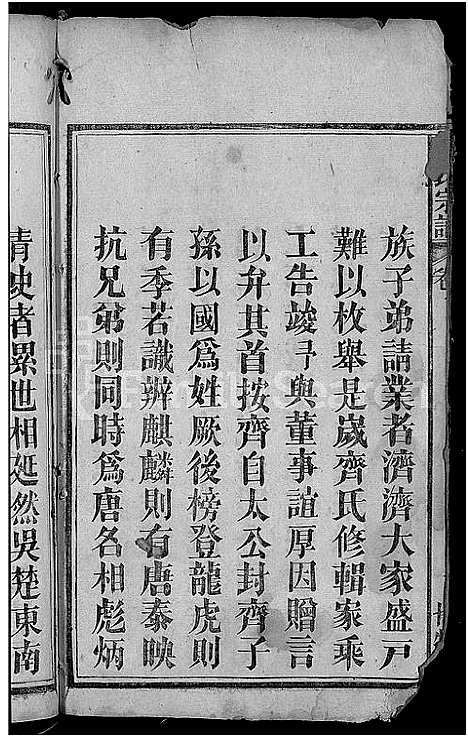 族子弟請業者濟濟大家盛戸
難以枚舉是嵗齊氏修輯家乘
工告竣予與董事誼厚因贈言
以弁其首按齊自太公封齊子
孫以國爲姓厥後榜登龍虎則
有季若識辨麒麟則有唐泰映
抗兄弟則同時爲唐名相彪炳
青史者累世相延然吳楚東南
宗譜
卷